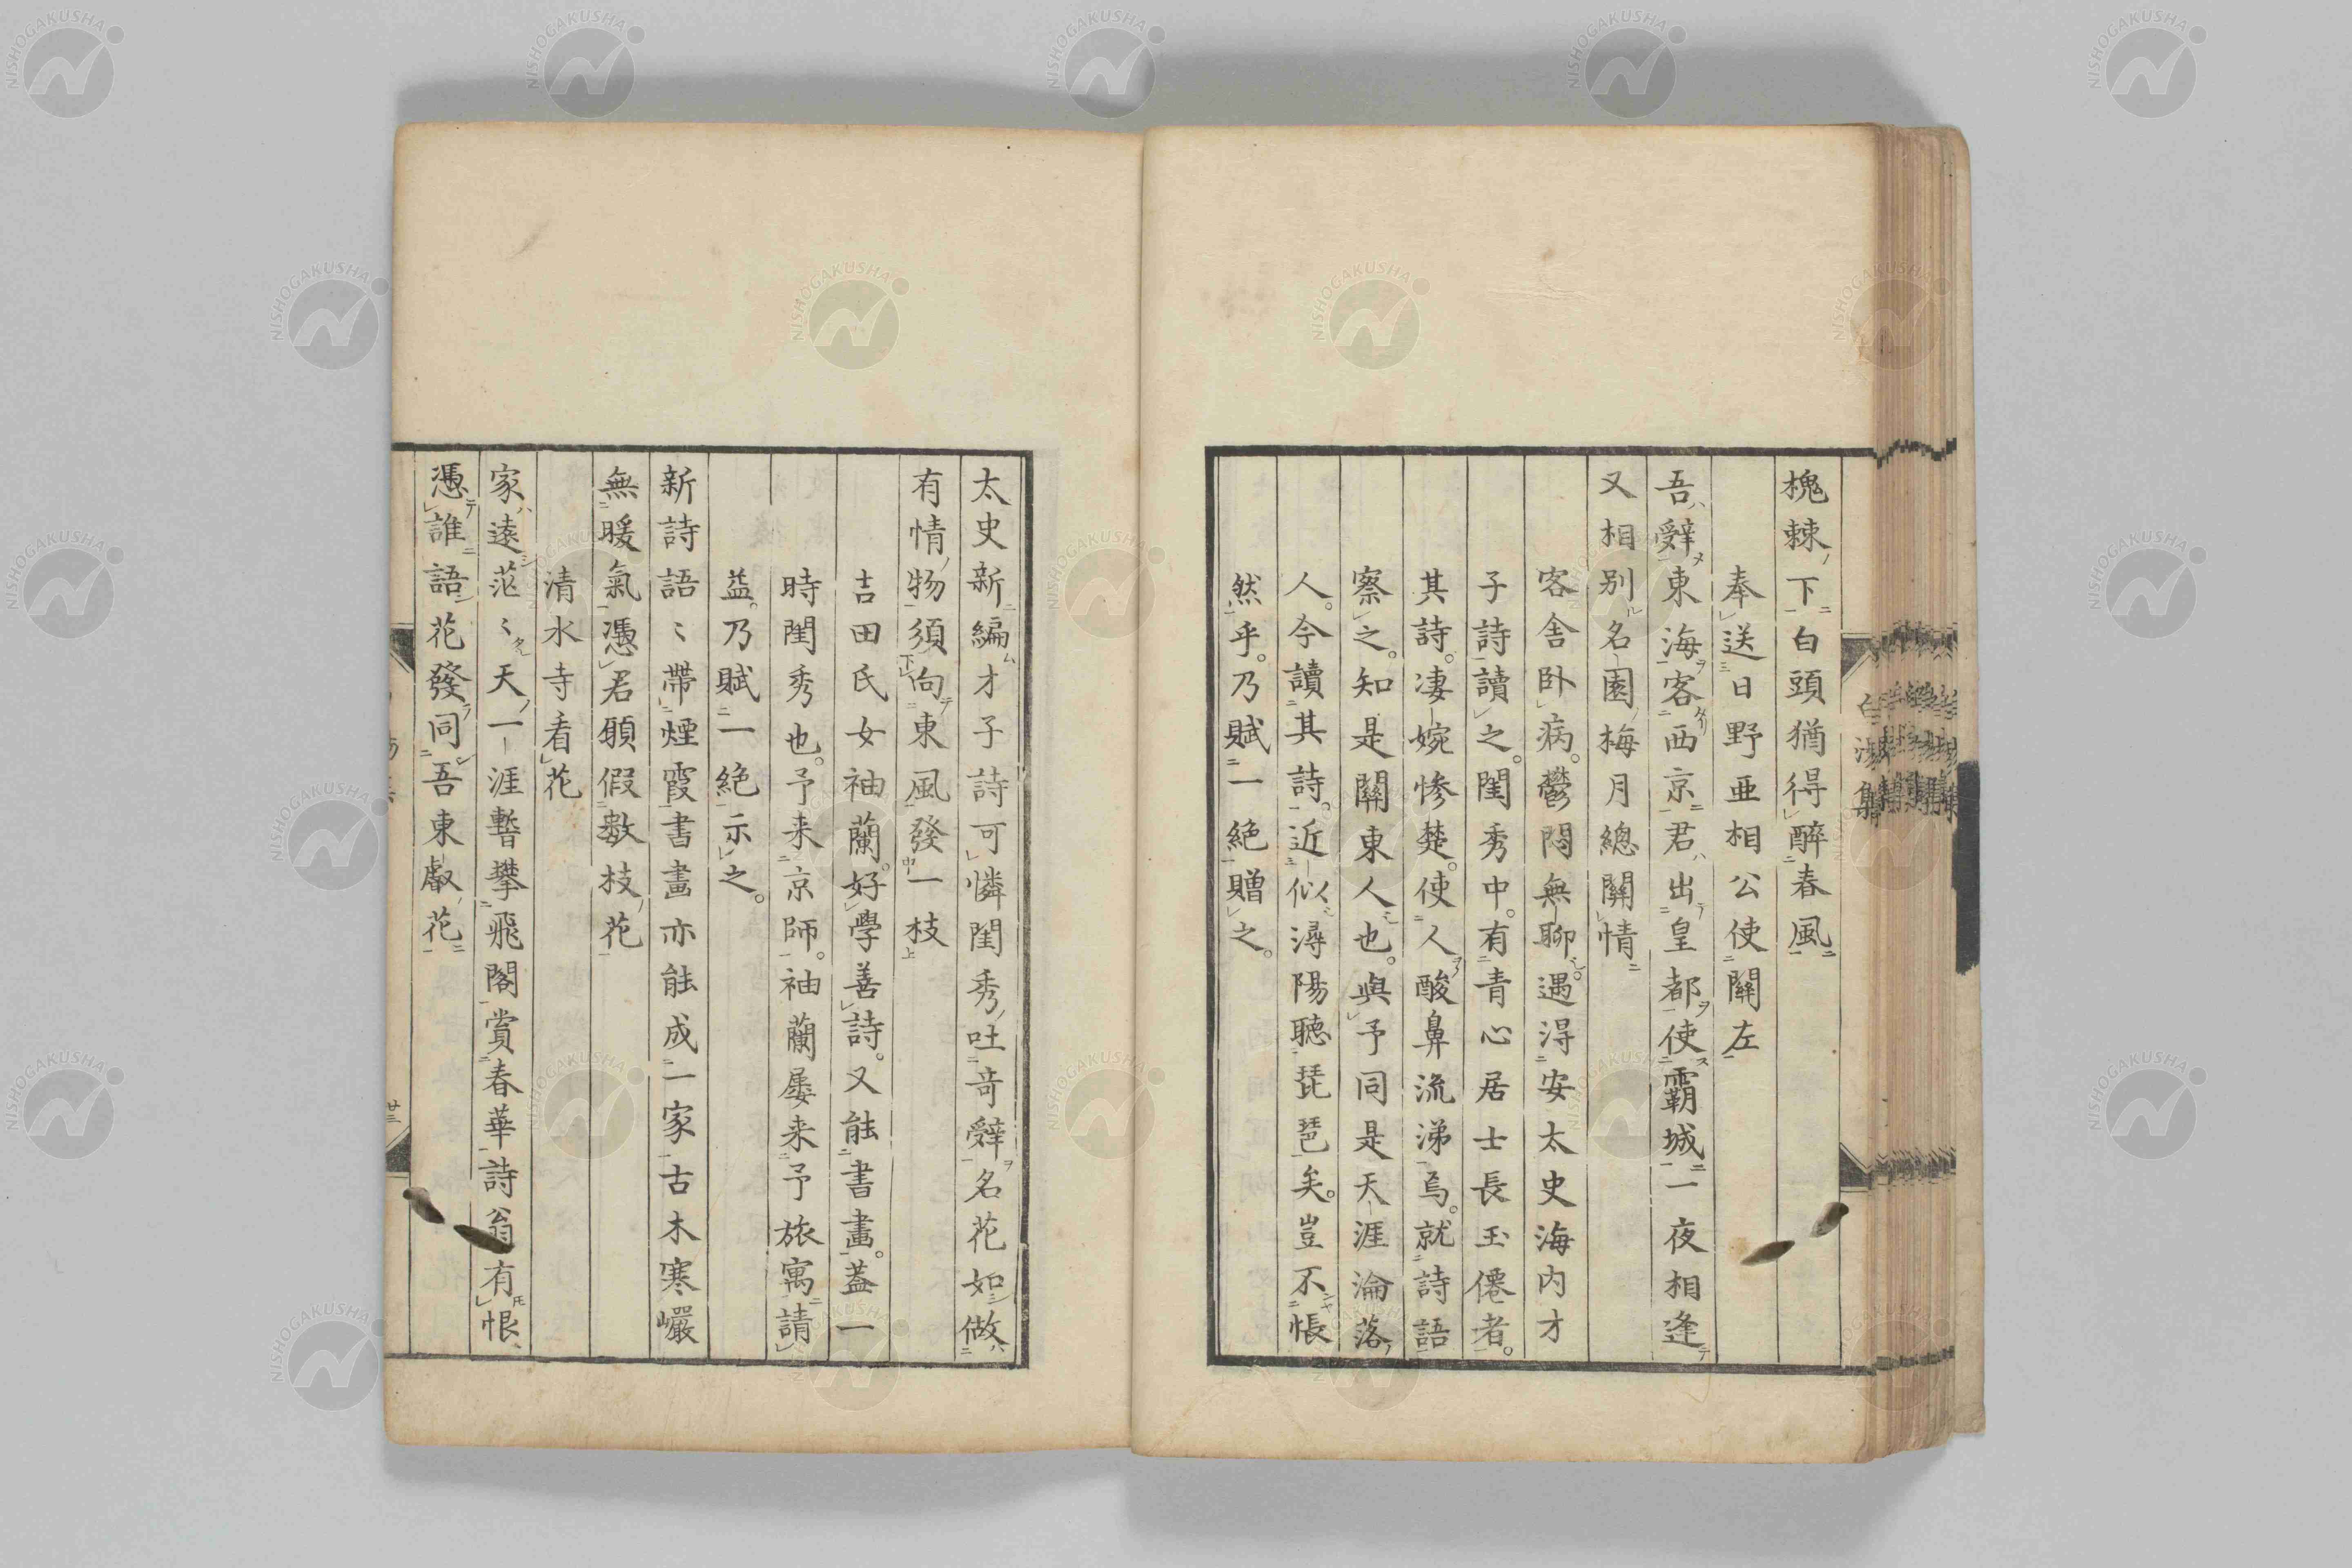 槐棘下白頭猶得醉春風
奉送日野亜相公使關左
吾辭東海客西京君出皇都使霸城一夜相逢
又相別名園梅月總關情
客舎臥病鬱悶無聊遇得安太史海内才
子詩讀之閨秀中有青心居士長玉僊者
其詩凄婉惨楚使人酸鼻流涕焉就詩語
察之知是關東人也與予同是天涯淪落
人今讀其詩近似潯陽聽琵琶矣豈不悵
然乎乃賦一絶贈之
太史新編才子詩可憐閨秀吐奇辭名花如做
有情物須向東風發一枝
吉田氏女袖蘭好學善詩又能書畫蓋一
時閨秀也予来京師袖蘭屡来予旅寓請
益乃賦一絶示之
新詩語〻帶煙霞書畫亦能成一家古木寒巖
無暖氣憑君願假数枝花
清水寺看花
家遠茫〻天一涯暫攀飛閣賞春華詩翁有恨
憑誰語花發同吾東叡花
廿三
NISHOGAKUSHA